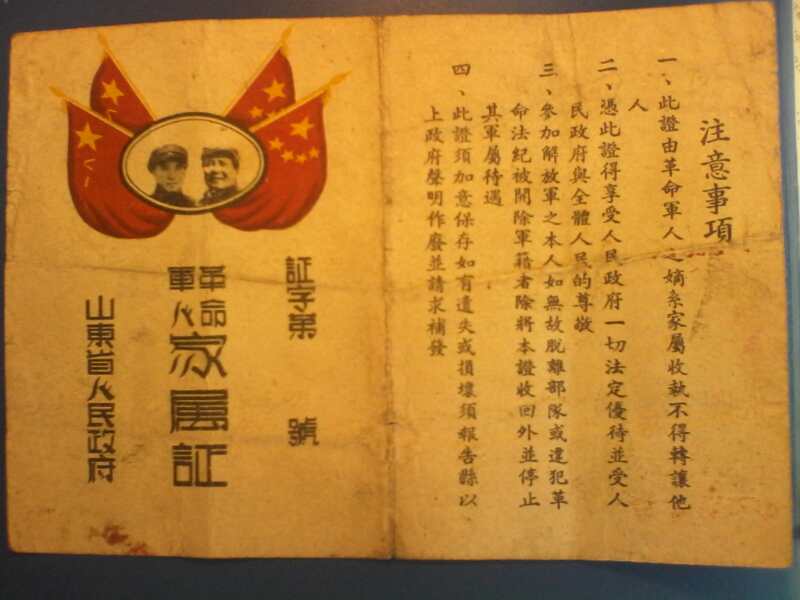 注意事項
一、此證由革命軍人之嫡系家屬收執不得轉讓他
人
二、憑此證得享受人民政府一切法定優待並受人
民政府與全體人民的尊敬
三、參加解放軍之本人如無故脫離部隊或違犯革
命法紀被開除軍籍者除將本證收回外並停止
其軍屬待遇
四、此證須加意保存如有遺失或損壞須報告縣以
上政府聲明作廢並請求補發
証字第 號
革命
軍人
家属証
山東省人民政府
八一
八一